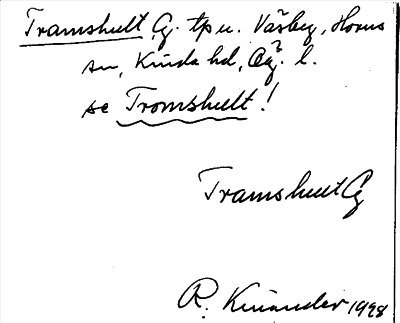 Tramshult, Lg. tp u. Väsby, Horns
sn, Kinda hd, Ög. l.
se Tromshult!
Tramshult Lg
R. Kinander 1928